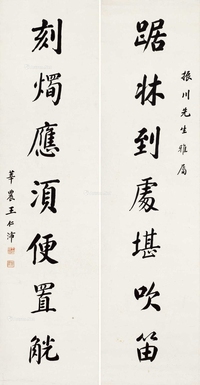 振川先生雅屬
踞牀到處堪吹笛
刻燭應須便置觥
華農王仁沛